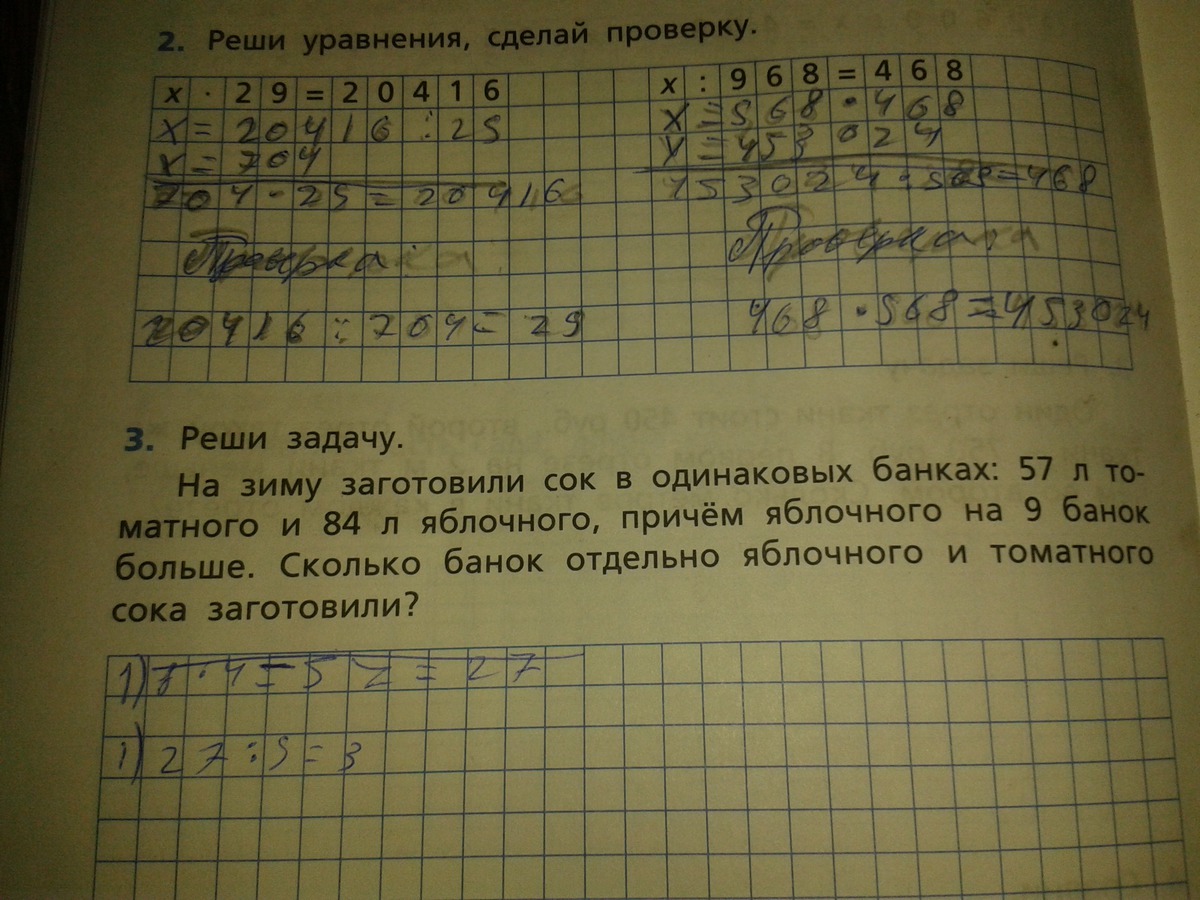 2. Реши уравнения, сделай проверку.
x · 29 = 20416
x = 20416 : 29
x = 704
704 · 29 = 20416
Проверка
20416 : 704 = 29
x : 968 = 468
x = 968 · 468
x = 453024
453024 : 968 = 468
Проверка:
468 · 968 = 453024
3. Реши задачу.
На зиму заготовили сок в одинаковых банках: 57 л то-
матного и 84 л яблочного, причём яблочного на 9 банок
больше. Сколько банок отдельно яблочного и томатного
сока заготовили?
1) 4 = 57 = 27
1) 27 : 9 = 3